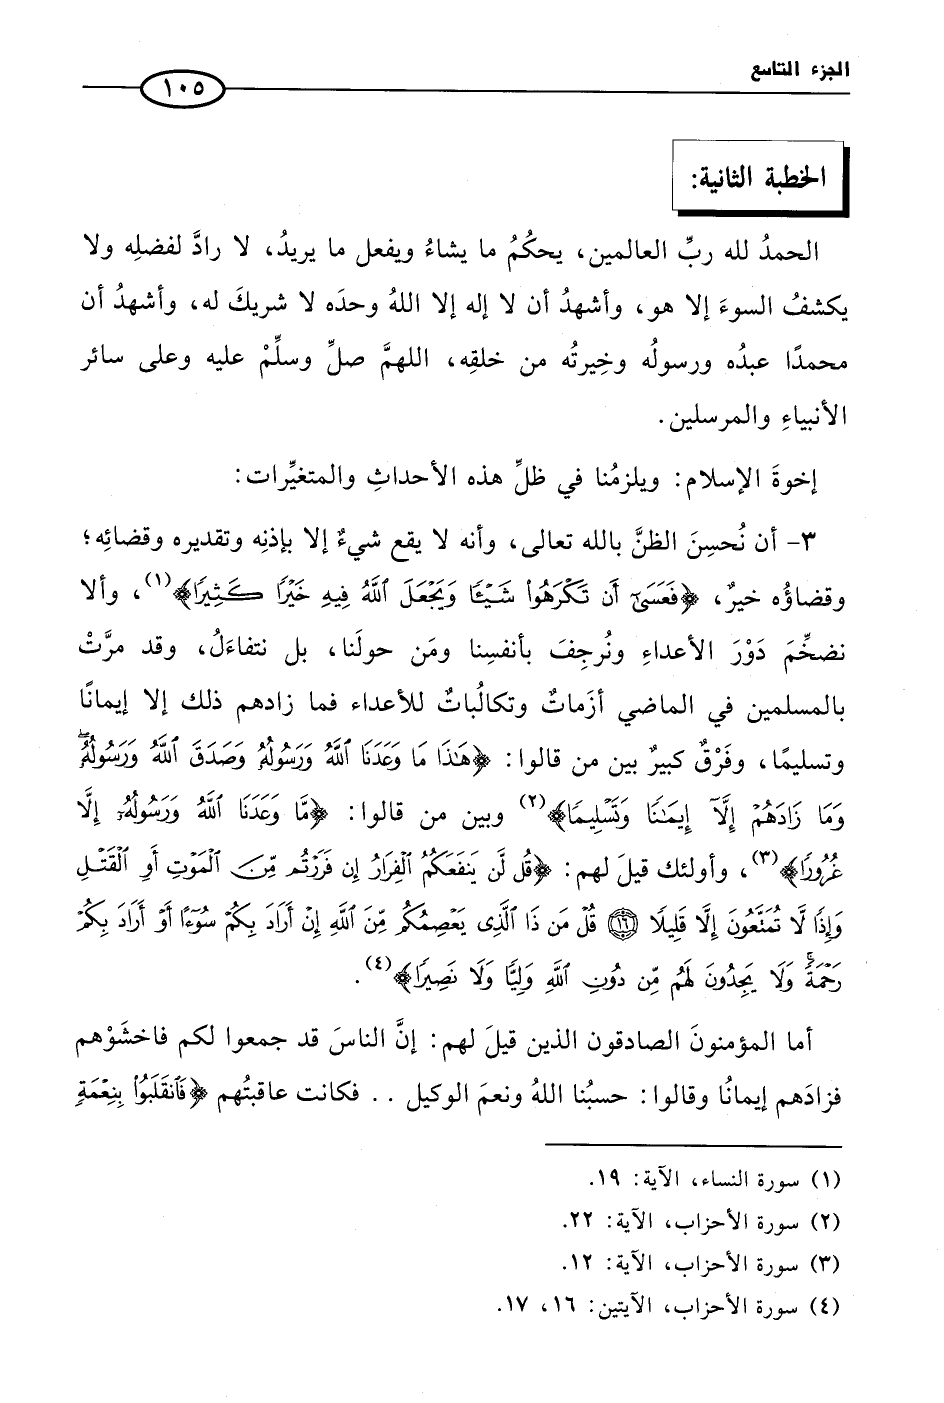 الجزء التاسع
١٠٥
الخطبة الثانية:
الحمدُ لله ربِّ العالمين، يحكُمُ ما يشاءُ ويفعل ما يريدُ، لا رادَّ لفضلِه ولا
يكشفُ السوءَ إلا هو، وأشهدُ أن لا إله إلا اللهُ وحدَه لا شريكَ له، وأشهدُ أن
محمدًا عبدُه ورسولُه وخِيرتُه من خلقِه، اللهمَّ صلِّ وسلِّمْ عليه وعلى سائر
الأنبياءِ والمرسلين.
إخوةَ الإسلام: ويلزمُنا في ظلِّ هذه الأحداثِ والمتغيِّرات:
٣- أن نُحسِنَ الظنَّ بالله تعالى، وأنه لا يقع شيءٌ إلا بإذنِه وتقديره وقضائِه؛
وقضاؤُه خيرٌ، ﴿فَعَسَىٰٓ أَن تَكْرَهُوا۟ شَيْـًٔا وَيَجْعَلَ ٱللَّهُ فِيهِ خَيْرًا كَثِيرًا﴾(١)، وألا
نضخِّمَ دَوْرَ الأعداءِ ونُرجِفَ بأنفسِنا ومَن حولَنا، بل نتفاءَلُ، وقد مرَّتْ
بالمسلمين في الماضي أزَماتٌ وتكالُباتٌ للأعداء فما زادهم ذلك إلا إيمانًا
وتسليمًا، وفَرْقٌ كبيرٌ بين من قالوا: ﴿هَـٰذَا مَا وَعَدَنَا ٱللَّهُ وَرَسُولُهُۥ وَصَدَقَ ٱللَّهُ وَرَسُولُهُۥۚ
وَمَا زَادَهُمْ إِلَّآ إِيمَـٰنًا وَتَسْلِيمًا﴾(٢) وبين من قالوا: ﴿مَّا وَعَدَنَا ٱللَّهُ وَرَسُولُهُۥٓ إِلَّا
غُرُورًا﴾(٣)، وأولئك قيلَ لهم: ﴿قُل لَّن يَنفَعَكُمُ ٱلْفِرَارُ إِن فَرَرْتُم مِّنَ ٱلْمَوْتِ أَوِ ٱلْقَتْلِ
وَإِذًا لَّا تُمَتَّعُونَ إِلَّا قَلِيلًا ۝١٦ قُلْ مَن ذَا ٱلَّذِى يَعْصِمُكُم مِّنَ ٱللَّهِ إِنْ أَرَادَ بِكُمْ سُوٓءًا أَوْ أَرَادَ بِكُمْ
رَحْمَةًۚ وَلَا يَجِدُونَ لَهُم مِّن دُونِ ٱللَّهِ وَلِيًّا وَلَا نَصِيرًا﴾(٤).
أما المؤمنونَ الصادقون الذين قيلَ لهم: إنَّ الناسَ قد جمعوا لكم فاخشَوْهم
فزادَهم إيمانًا وقالوا: حسبُنا اللهُ ونعمَ الوكيل .. فكانت عاقبتُهم ﴿فَٱنقَلَبُوا۟ بِنِعْمَةٍ
(١) سورة النساء، الآية: ١٩.
(٢) سورة الأحزاب، الآية: ٢٢.
(٣) سورة الأحزاب، الآية: ١٢.
(٤) سورة الأحزاب، الآيتين: ١٦، ١٧.